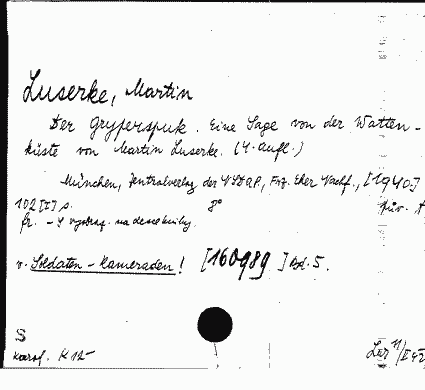 Luserke, Martin
Der Gryperspuk. Eine Sage von der Watten-
küste von Martin Luserke. (4. Aufl.)
München, Zentralverlag der NSDAP, Frz. Eher Nachf., [1940]
102 [I] s. 8°
fr. - 4
v. Soldaten - Kameraden! [160989] Bd. 5.
S
K 12